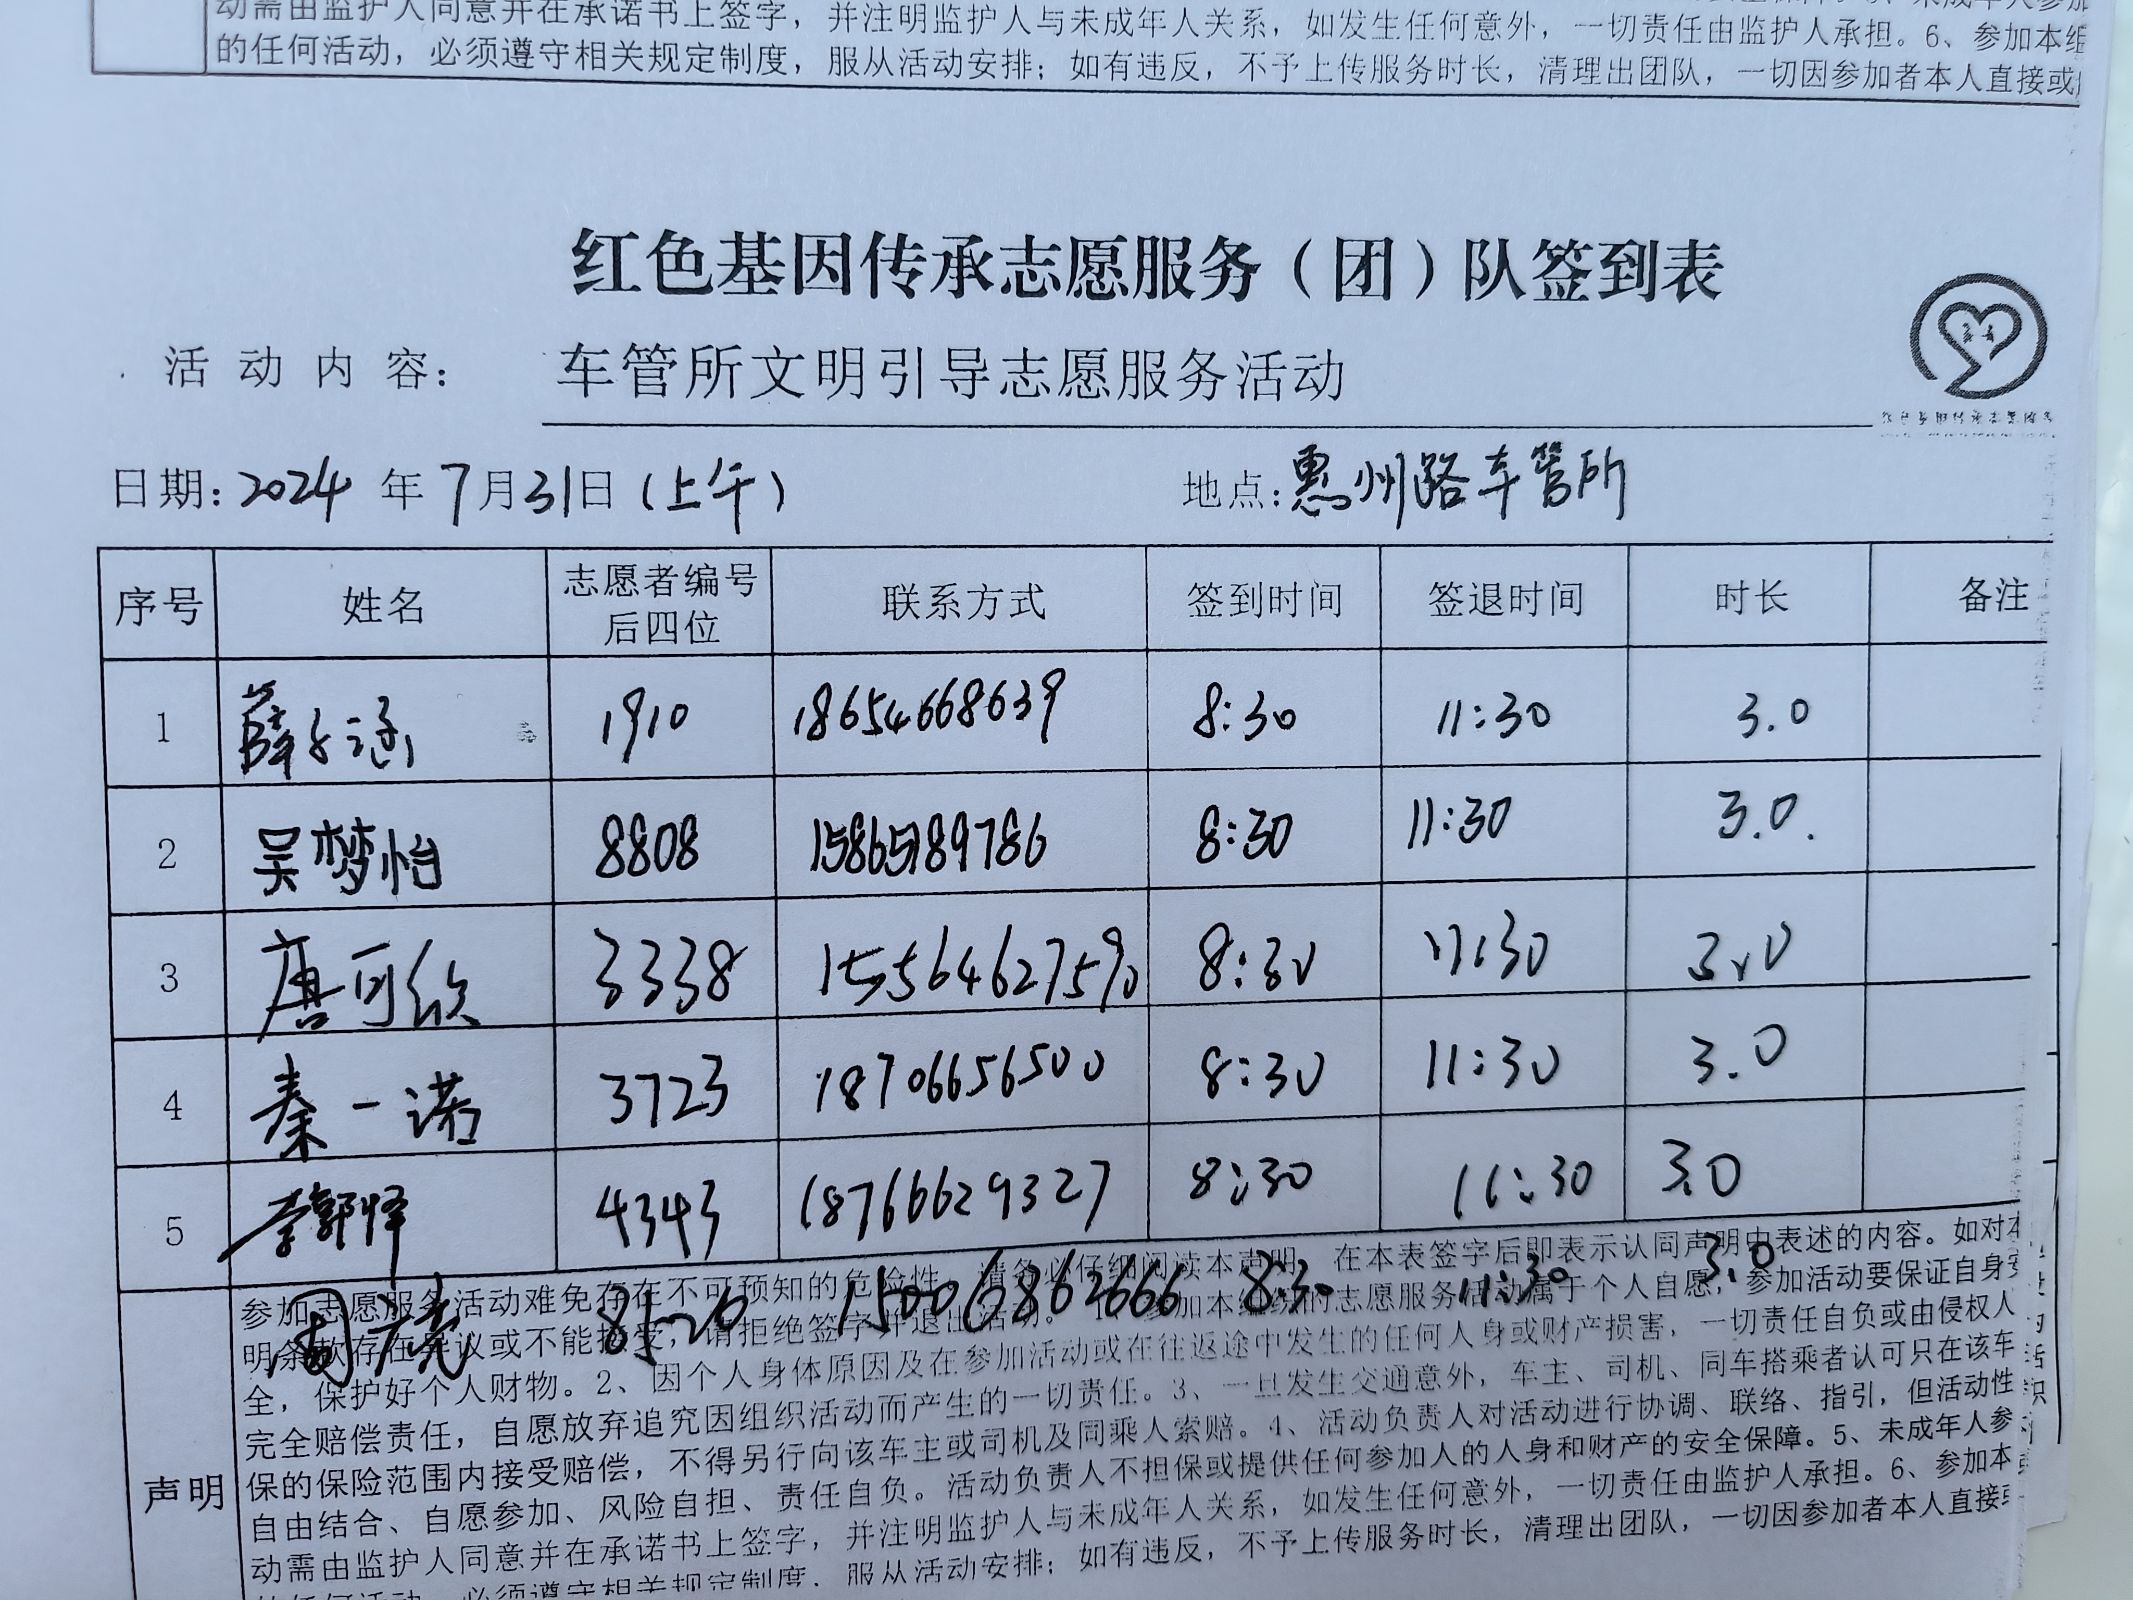 动需由监护人同意并在承诺书上签字，并注明监护人与未成年人关系，如发生任何意外，一切责任由监护人承担。6、参加本组
的任何活动，必须遵守相关规定制度，服从活动安排；如有违反，不予上传服务时长，清理出团队，一切因参加者本人直接或
红色基因传承志愿服务（团）队签到表
活动内容： 车管所文明引导志愿服务活动
日期：2024年7月31日（上午） 地点：惠州路车管所
序号 姓名 志愿者编号后四位 联系方式 签到时间 签退时间 时长 备注
1 薛子涵 1910 18654668639 8:30 11:30 3.0
2 吴梦怡 8808 15865189786 8:30 11:30 3.0.
3 唐可欣 3338 15564627590 8:30 11:30 3.0
4 秦一诺 3723 18706656500 8:30 11:30 3.0
5 李郭怿 4343 18766629327 8:30 11:30 3.0
周 15006862666 8:30 11:30 3.0
声明
参加志愿服务活动难免存在不可预知的危险性，请务必仔细阅读本声明，在本表签字后即表示认同声明中表述的内容。如对本
明条款存在异议或不能接受，请拒绝签字并退出活动。1、参加本组织的志愿服务活动属于个人自愿，参加活动要保证自身安
全，保护好个人财物。2、因个人身体原因及在参加活动或在往返途中发生的任何人身或财产损害，一切责任自负或由侵权人
完全赔偿责任，自愿放弃追究因组织活动而产生的一切责任。3、一旦发生交通意外，车主、司机、同车搭乘者认可只在该车
保的保险范围内接受赔偿，不得另行向该车主或司机及同乘人索赔。4、活动负责人对活动进行协调、联络、指引，但活动性
自由结合、自愿参加、风险自担、责任自负。活动负责人不担保或提供任何参加人的人身和财产的安全保障。5、未成年人参
动需由监护人同意并在承诺书上签字，并注明监护人与未成年人关系，如发生任何意外，一切责任由监护人承担。6、参加本
的任何活动，必须遵守相关规定制度，服从活动安排；如有违反，不予上传服务时长，清理出团队，一切因参加者本人直接或